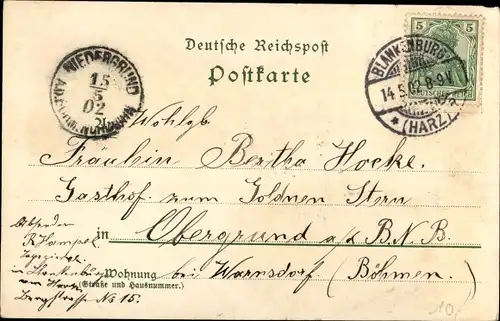 Deutsche Reichspost
Postkarte
NIEDERGRUND
15
5
02
BLANKENBURG
14.5.02.8-9V.
* (HARZ)
5 5
Wohlgb
Fräulein Bertha Hocke.
Gasthof zum Goldnen Stern
in Obergrund a/d B.N.B.
Wohnung bei Warnsdorf (Böhmen.)
(Straße und Hausnummer.)
Absender
R Hampel
Tapezierer
in Blankenburg
am Harz
Bergstrasse No 15.
10,